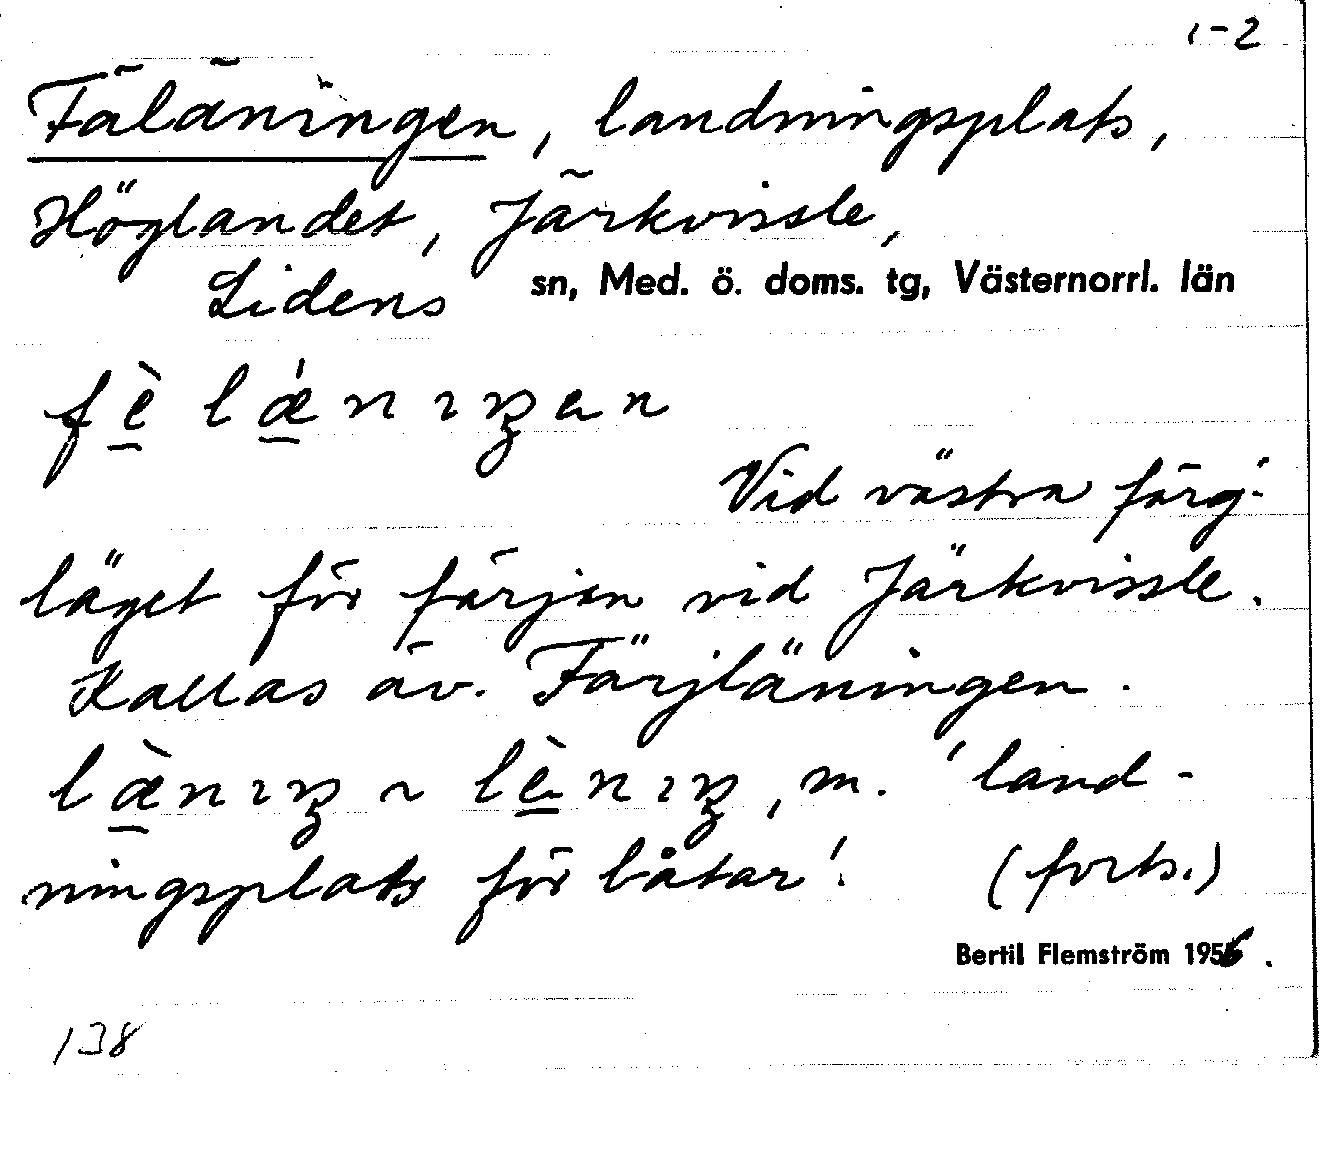 1-2
Fäläningen, landningsplats,
Höglandet, Järkvissle,
Lidens sn, Med. ö. doms. tg, Västernorrl. län
fè lǽnıŋen
Vid västra färj-
läget för färjan vid Järkvissle.
Kallas äv. Färjläningen.
lǽ̀nıŋ ~ lènıŋ, m. 'land-
ningsplats för båtar'. (forts.)
Bertil Flemström 1956.
138